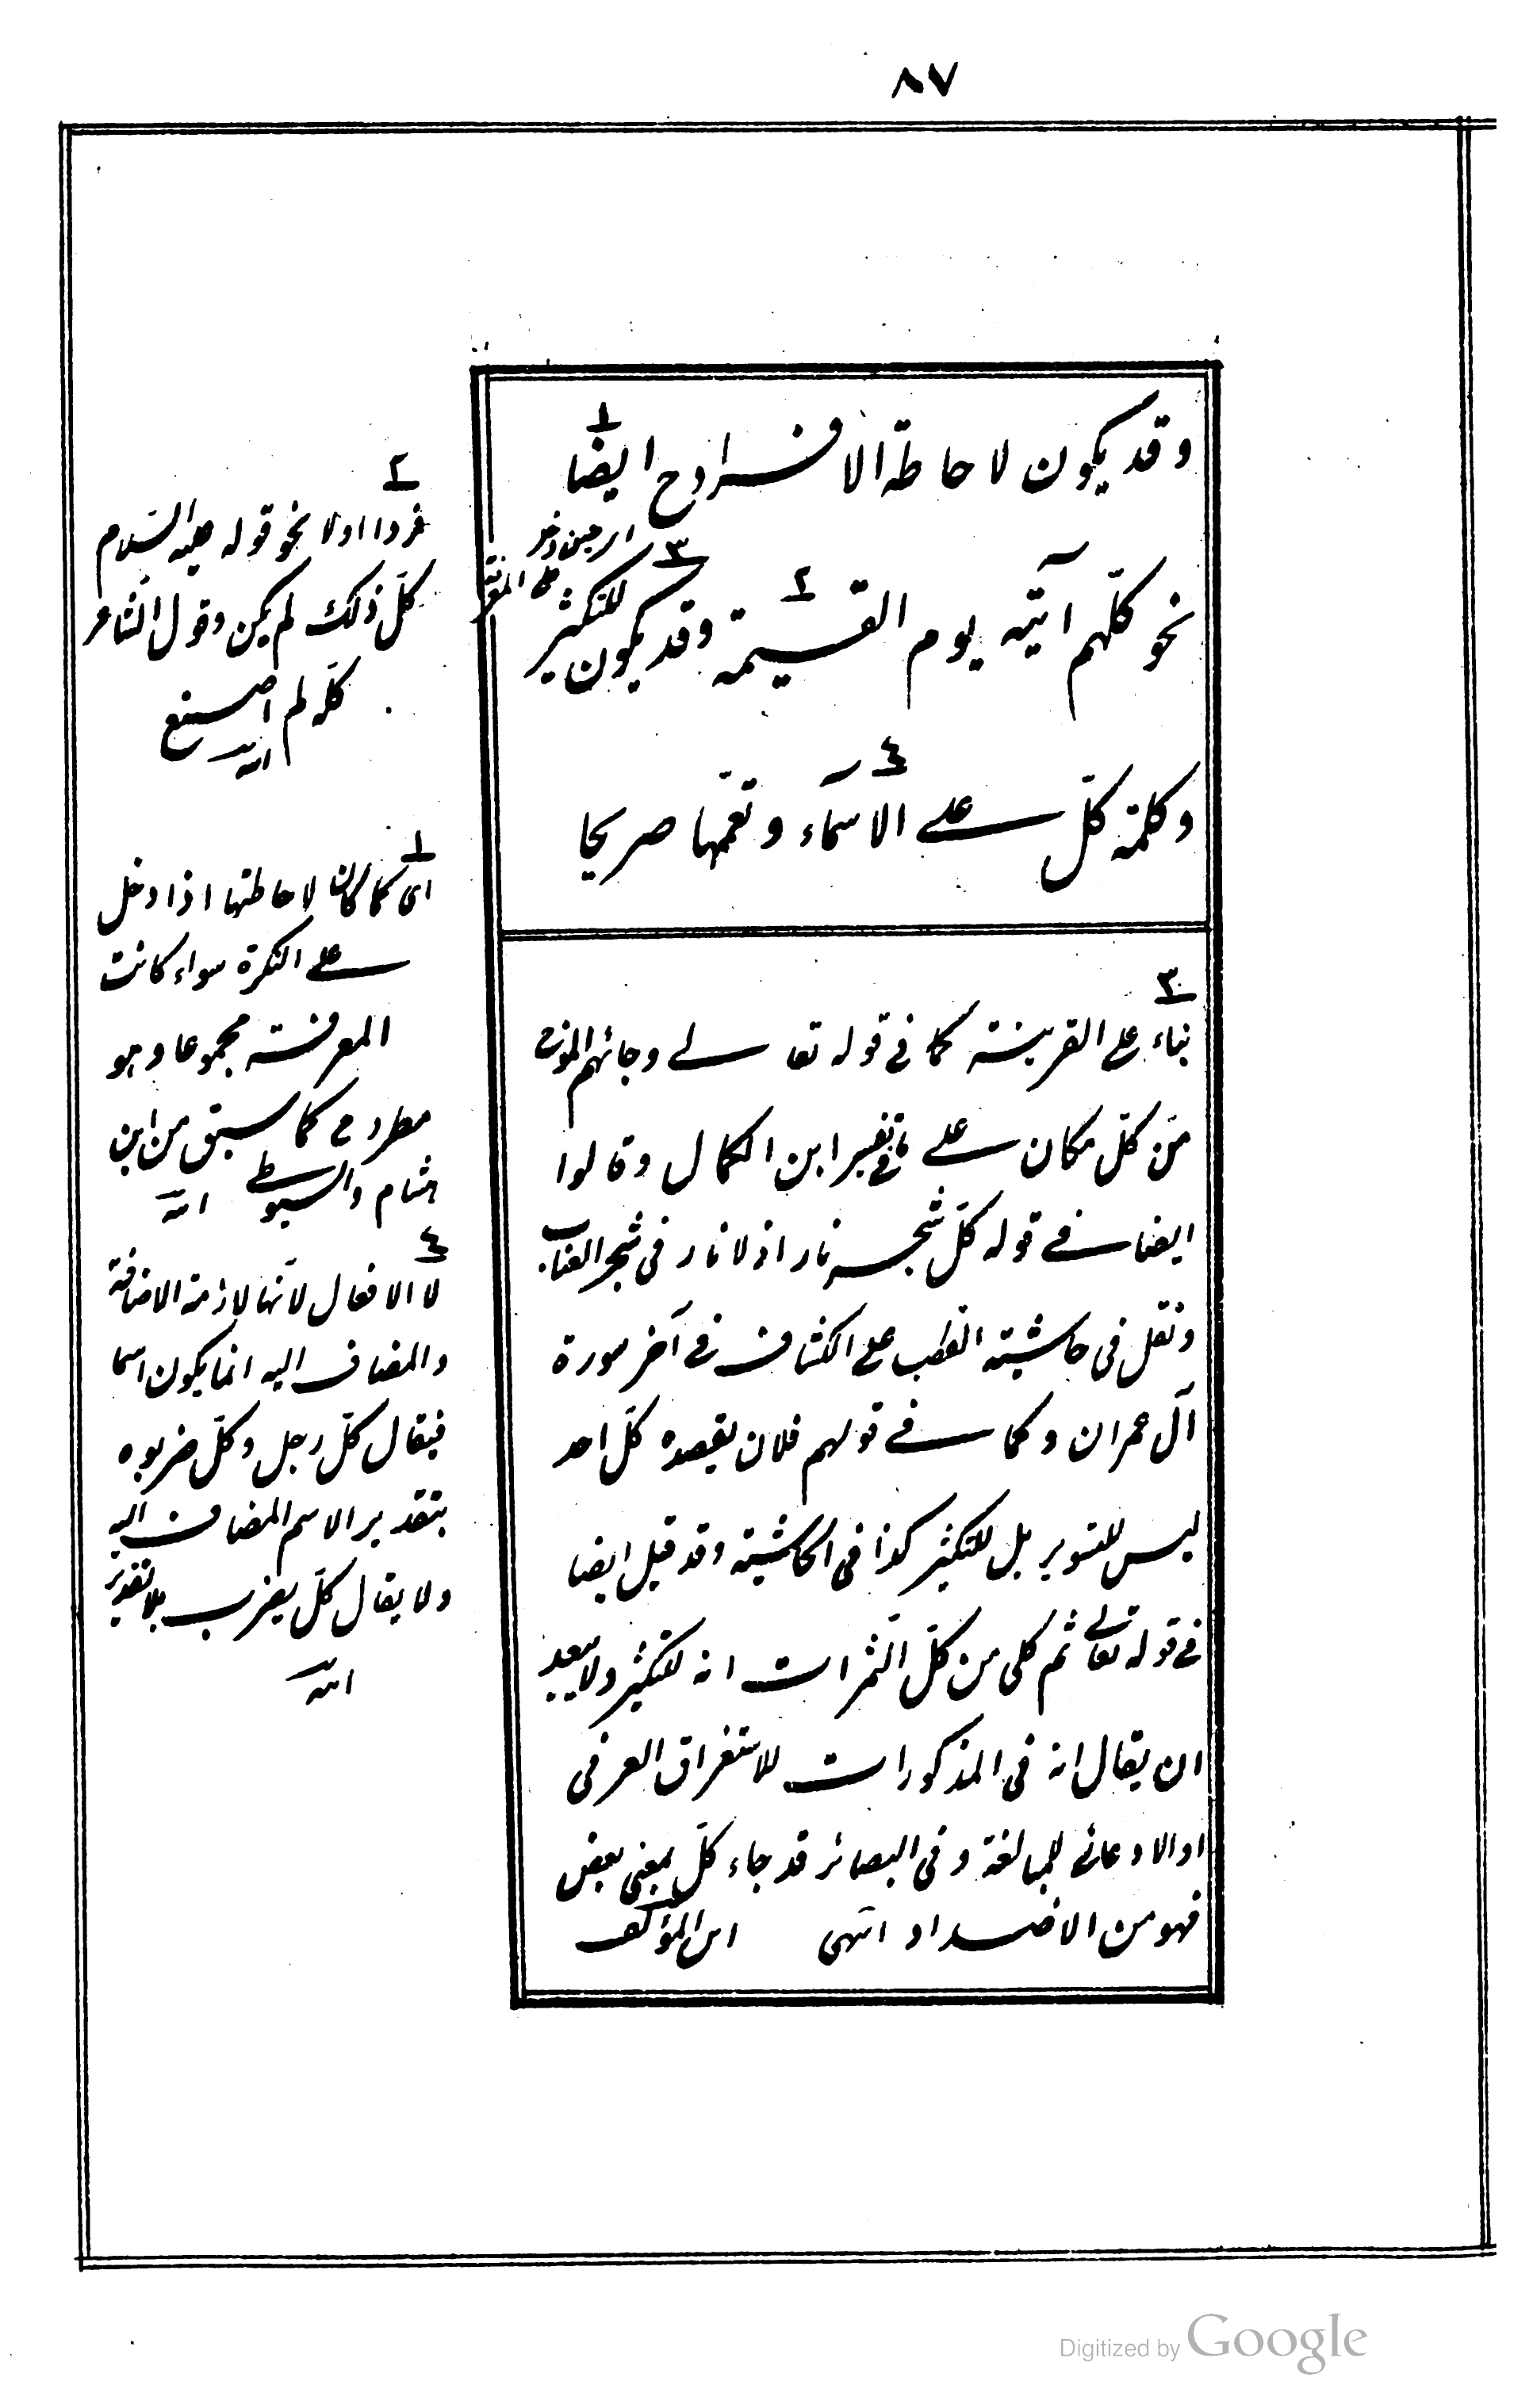 ٨٧
وقد يكون لاحاطة الافراد ح ايضا ١
اى حين دخل
على المعرفة
نحو كلّهم آتيه يوم القيمة ٢ وقد يكون للتكثير ٣
وكلمة كلّ على الاسمآء ٤ وتعمّها صريحا
٣
بناء على القرينة كما فى قوله تعالى وجائهم الموج
من كلّ مكان على ما فى تفسير ابن الكمال وقالوا
ايضا فى قوله كلّ شجر نار اذ لا نار فى شجر العناب
ونقل فى حاشية القطب على الكشاف فى آخر سورة
آل عمران وكما فى قولهم فلان يقصده كلّ احد
ليس للتسوير بل للتكثير كذا فى الحاشية وقد قيل ايضا
فى قوله تعالى ثم كلى من كلّ الثمرات انه للتكثير ولا يبعد
ان يقال انه فى المذكورات للاستغراق العرفى
او الادعائى للمبالغة وفى البصائر قد جاء كلّ بمعنى بعض
فهو من الاضداد انتهى من المؤلف
٢
فردا اولا نحو قوله عليه السّلام
كلّ ذلك لم يكن وقول الشاعر
كلّه لم اصنع
منه
١
اى كما كان لاحاطتها اذا دخل
على النكرة سواء كانت
المعرفة مجموعا وهو
مطرد م كما سبق من ابن
هشام والسيوطى منه
٤
لا الافعال لانّها لازمة الاضافة
والمضاف اليه انما يكون اسما
فيقال كلّ رجل وكلّ ضربوه
بتقدير الاسم المضاف اليه
ولا يقال كلّ يضرب بلا تقدير
منه
Digitized by Google